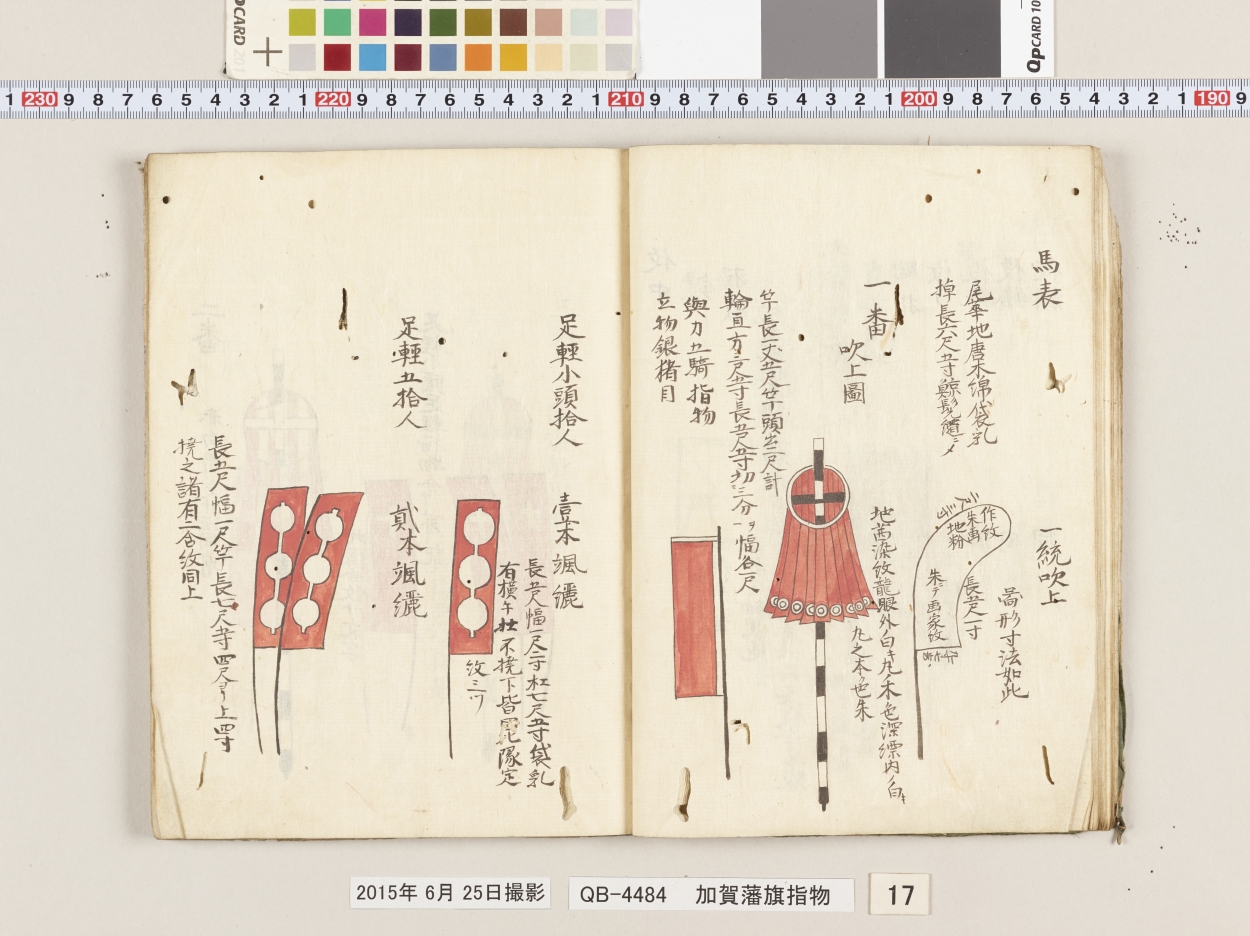 QPCARD 201
QPCARD 10
1 230 9 8 7 6 5 4 3 2 1 220 9 8 7 6 5 4 3 2 1 210 9 8 7 6 5 4 3 2 1 200 9 8 7 6 5 4 3 2 1 190 9
馬表
一統吹上
啚形寸法如此
尾率地唐木綿袋乳
棹長六尺五寸鯨髭縫ニメ
作紋
朱画
地粉
長五尺一寸
朱ニテ画家紋
一番
吹上圖
地茜染紋龍眼外ノ白キ丸ノ禾色深縹内ノ白キ
丸之本ノ也朱
竿長一丈五尺竿頭出二尺計
輪亘方二尺五寸長五尺五寸切三分一ヲ幅各一尺
與力五騎指物
立物銀楮目
足輕小頭拾人
壹本颯纚
長五尺幅一尺二寸杠七尺五寸袋乳
有橫午壮不撓下皆隊定
紋三ツ
足輕五拾人
貳本颯纚
長五尺幅一尺竿長七尺寺四尺ヨリ上四寸
撓之諸有二合紋同上
2015年 6月 25日撮影
QB-4484 加賀藩旗指物
17